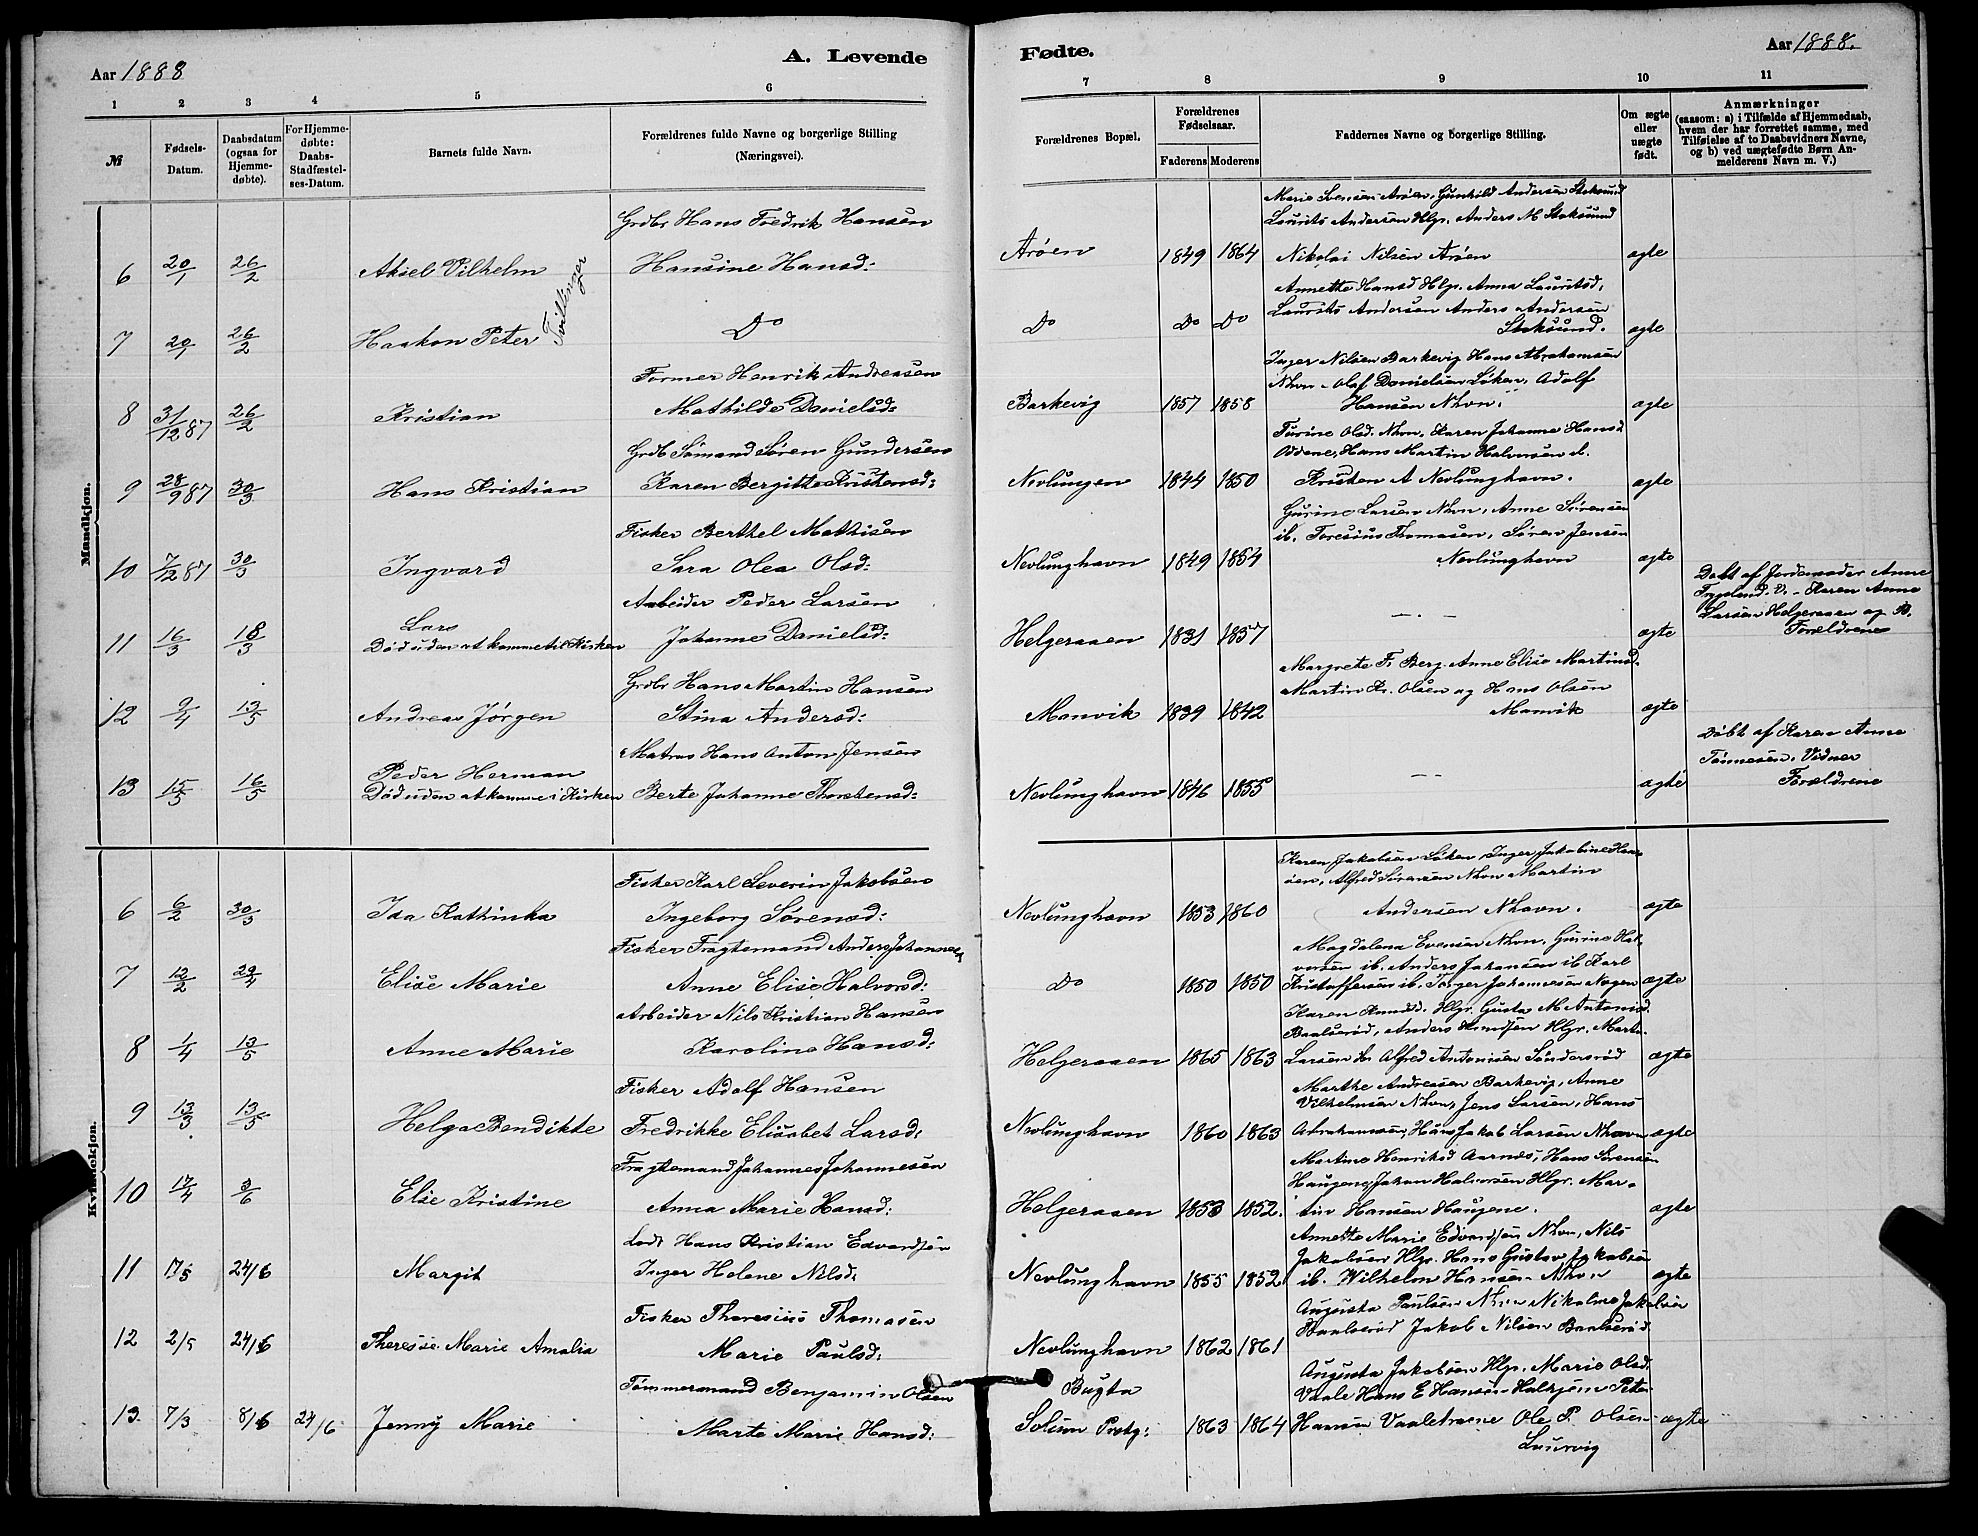 Aar 1888
A. Levende
Fødte.
Aar 1888.
1 2 3 4 5 6 7 8 9 10 11
№
Fødsels-Datum.
Daabsdatum (ogsaa for Hjemmedøbte).
For Hjemmedøbte: Daabs-Stadfæstelses-Datum.
Barnets fulde Navn.
Forældrenes fulde Navne og borgerlige Stilling (Næringsvei).
Forældrenes Bopæl.
Forældrenes Fødselsaar.
Faderens Moderens
Faddernes Navne og borgerlige Stilling.
Om ægte eller uægte født.
Anmærkninger (saasom: a) i Tilfælde af Hjemmedaab, hvem der har forrettet samme, med Tilføielse af to Daabsvidners Navne, og b) ved uægtefødte Børn Anmelderens Navn m. V.)
Mandkjøn.
Grdbr Hans Fredrik Hansen
Marie Svensen Arøen, Gunhild Andersen Stoksund
Laurits Andersen Hlgr. Anders M Stoksund
6 20/1 26/2 Aksel Vilhelm Hansine Hansd: Arøen 1849 1864 Nikolai Nilsen Arøen ægte
Tvillinger
Annette Hansd Hlgr. Anna Lauritsd.
Laurits Andersen Anders Andersen
7 20/1 26/2 Haakon Peter Do Do Do Do Stoksund. ægte
Former Henrik Andreasen
Inger Nilsen Barkevig Hans Abrahamsen
Nhvn - Olaf Danielsen Løken, Adolf
8 31/12 87 26/2 Kristian Mathilde Danielsd: Barkevig 1857 1858 Hansen Nhvn. ægte
Grdb Sømand Søren Gundersen
Turine Olsd. Nhvn. Karen Johanne Hansd
Oddene, Hans Martin Halvorsen ib.
9 28/9 87 30/3 Hans Kristian Karen Bergitte Kristensd: Nevlungen 1844 1850 Kristen A Nevlunghavn. ægte
Fisker Berthel Mathisen
Gurine Larsen Nhvn, Anne Sørensen
ib. Toresius Thomasen, Søren Jensen
10 7/12 87 30/3 Ingvard Sara Olea Olsd: Nevlunghavn 1849 1854 Nevlunghavn ægte
Arbeider Peder Larsen
Døbt af Jordemoder Anne
V. - Karen Anne
Larsen Helgeraaen og B.
Forældrene
Lars
11 16/3 18/3 Død uden at komme til Kirken Johanne Danielsd: Helgeraaen 1831 1857 - . - ægte
Grdbr Hans Martin Hansen
Margrete F. Berg. Anne Elise Martinsd.
Martin Kr. Olsen og Hans Olsen
12 9/4 13/5 Andreas Jørgen Stina Andersd: Manvik 1839 1842 Manvik ægte
Matros Hans Anton Jensen
Døbt af Karen Anne
Tønnesen. Vidner
Forældrene
Peder Herman
13 15/5 16/5 Død uden at komme i Kirken Berte Johanne Thorstensd: Nevlunghavn 1846 1855 - - ægte
Kvindekjøn.
Fisker Karl Severin Jakobsen
Karen Jakobsen Løken, Inger Jakobine Han-
sen, Alfred Sørensen Nhvn Martin
6 6/2 30/3 Ida Kathinka Ingeborg Sørensd: Nevlunghavn 1853 1860 Andersen Nhavn. ægte
Fisker Fragtemand Anders Johannesen
Magdalena Evensen Nhvn. Gurine Hal-
vorsen ib. Anders Johansen ib Karl
7 12/2 29/4 Elise Marie Anne Elise Halvorsd: Do 1850 1850 Kristoffersen ib. Torger Johannesen ægte
Arbeider Nils Kristian Hansen
Karen Knudsd. Hlgr. Gusta M Antonisd.
Baalsrød, Anders Knudsen Hlgr. Martin
8 1/4 13/5 Anne Marie Karoline Hansd: Helgeraaen 1865 1863 Larsen ib Alfred Antonisen Søndersrød ægte
Fisker Adolf Hansen
Marthe Andreasen Barkevig, Anne
Vilhelmsen Nhvn, Jens Larsen, Hans
9 13/3 13/5 Helga Bendikte Fredrikke Elisabet Larsd: Nevlunghavn 1860 1863 Abrahamsen, Hans Jakob Larsen Nhavn ægte
Fragtemand Johannes Johannesen
Martine Henriksd Aarnes, Hans Sørensen
Haugene, Johan Halvorsen Hlgr. Mar-
10 17/4 3/6 Else Kristine Anna Marie Hansd: Helgeraaen 1853 1852. tin Hansen Haugene. ægte
Lods Hans Kristian Edvardsen
Annette Marie Edvardsen Nhvn, Nils
Jakobsen Hlgr. Hans Gustav Jakobsen
11 17/5 24/6 Margit Inger Helene Nilsd: Nevlunghavn 1855 1852 ib. Wilhelm Hansen Nhvn ægte
Fisker Theresius Thomasen
Augusta Paulsen Nhvn Nikoline Jakobsen
Baalsrød Jakob Nilsen Baalsrød
12 2/5 24/6 Theresie Marie Amalia Marie Paulsd: Nevlunghavn 1862 1861
Tømmermand Benjamin Olsen
Bugta
Augusta Jakobsen Hlgr. Marie Olsd.
Vaale Hans E Hansen Peter
13. 7/3 8/6 24/6 Jenny Marie Marte Marie Hansd: Solum Prstg: 1863 1864 Hansen Ole P. Olsen ægte
Laurvig